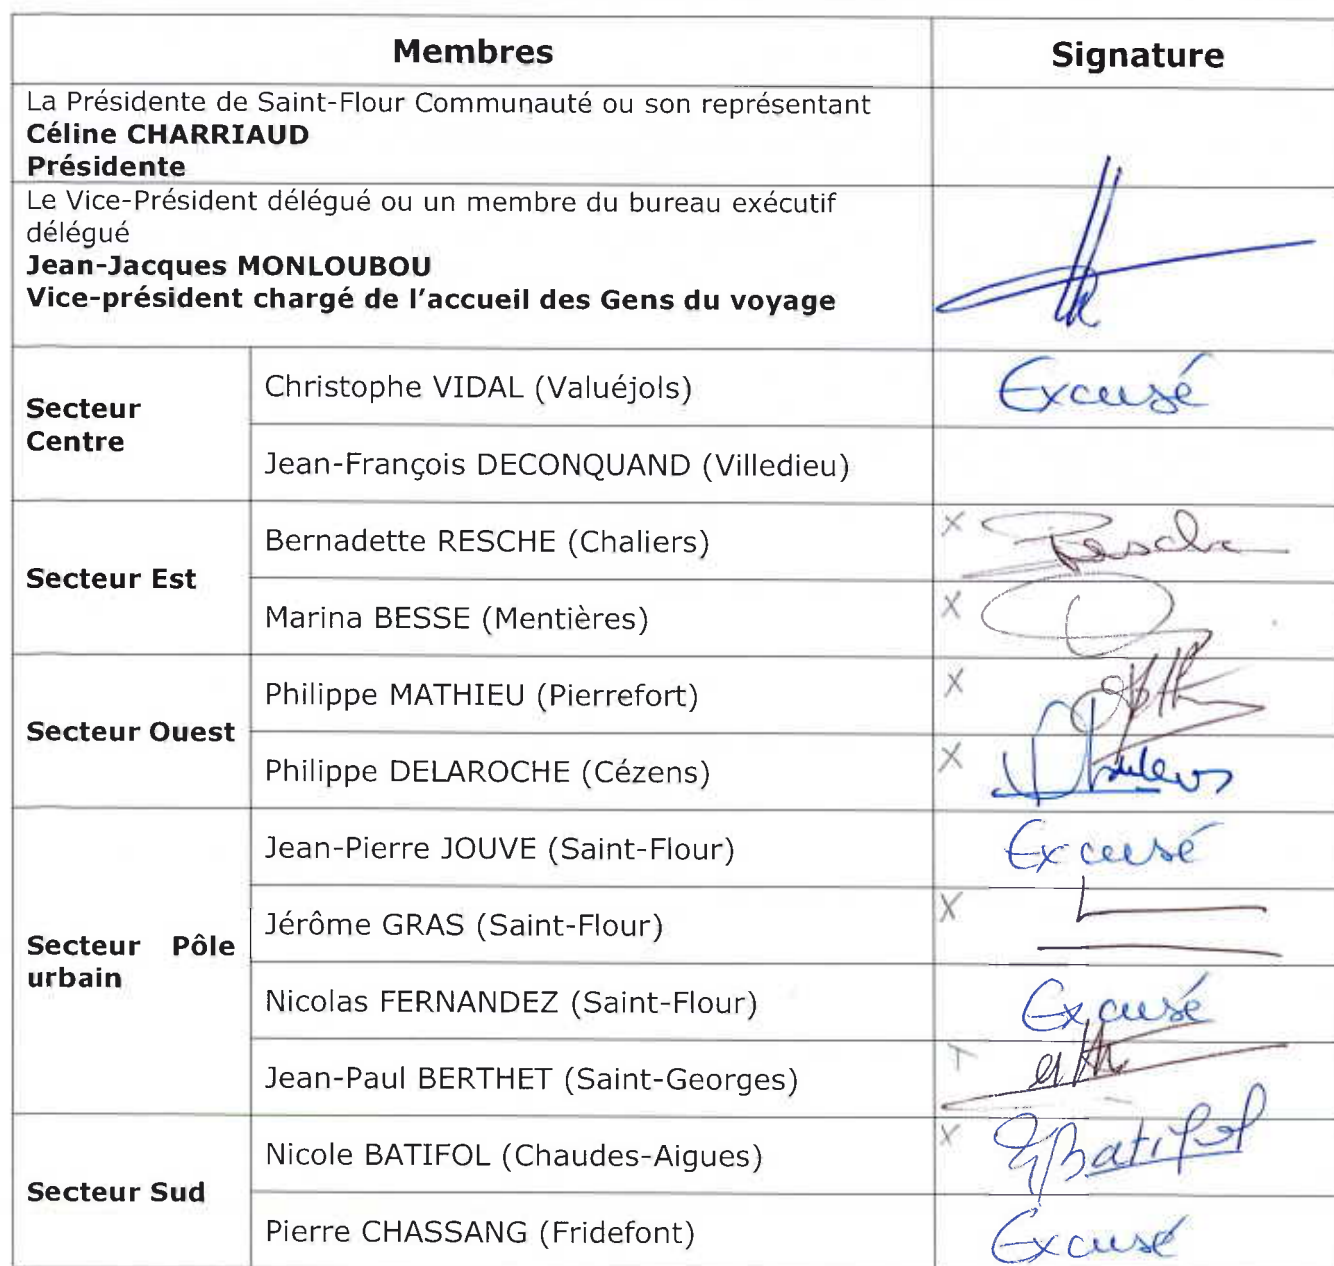 Membres
Signature
La Présidente de Saint-Flour Communauté ou son représentant
Céline CHARRIAUD
Présidente
Le Vice-Président délégué ou un membre du bureau exécutif
délégué
Jean-Jacques MONLOUBOU
Vice-président chargé de l'accueil des Gens du voyage
Secteur
Centre
Christophe VIDAL (Valuéjols)
Excusé
Jean-François DECONQUAND (Villedieu)
Secteur Est
Bernadette RESCHE (Chaliers)
X
Resche
Marina BESSE (Mentières)
X
Secteur Ouest
Philippe MATHIEU (Pierrefort)
X
Philippe DELAROCHE (Cézens)
X
Secteur Pôle
urbain
Jean-Pierre JOUVE (Saint-Flour)
Excusé
Jérôme GRAS (Saint-Flour)
X
Nicolas FERNANDEZ (Saint-Flour)
Excusé
Jean-Paul BERTHET (Saint-Georges)
Secteur Sud
Nicole BATIFOL (Chaudes-Aigues)
X
Batifol
Pierre CHASSANG (Fridefont)
Excusé